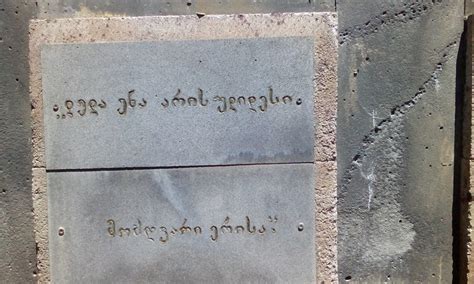 „დედა ენა არის უდიდესი
მოძღვარი ერისა“.